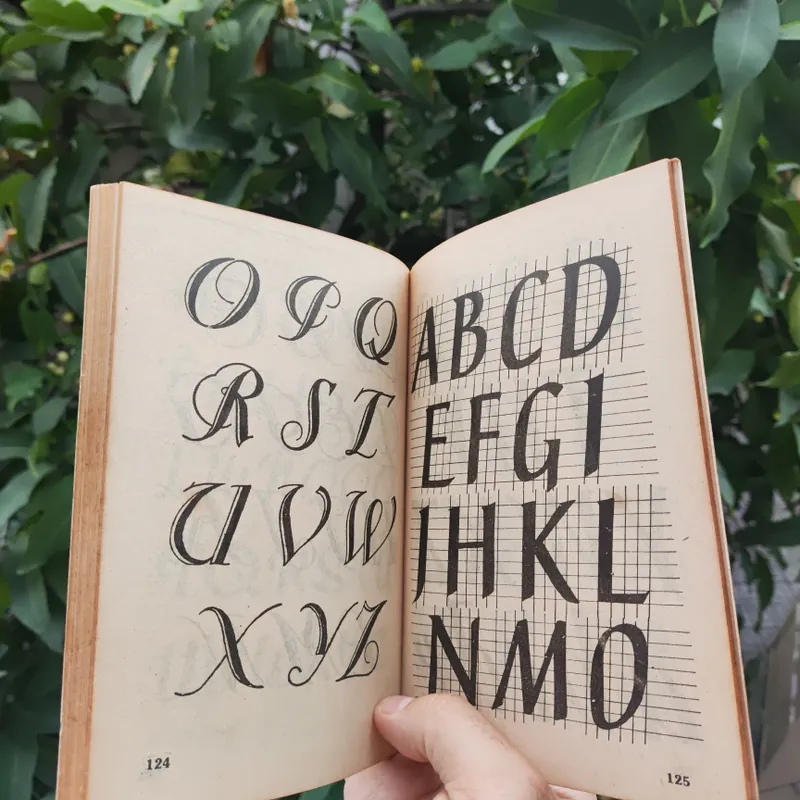 O P Q
R S T
U V W
X Y Z
124
A B C D
E F G I
J H K L
N M O
125